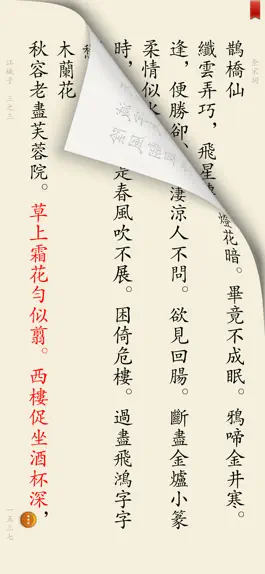 全宋詞
鵲橋仙
燈花暗。畢竟不成眠。鴉啼金井寒。
纖雲弄巧，飛星
逢，便勝卻
淒涼人不問。欲見回腸。斷盡金爐小篆
柔情似水
時，
是春風吹不展。困倚危樓。過盡飛鴻字字
木蘭花
秋容老盡芙蓉院。草上霜花勻似翦。西樓促坐酒杯深，
江城子 三之三
一五三七